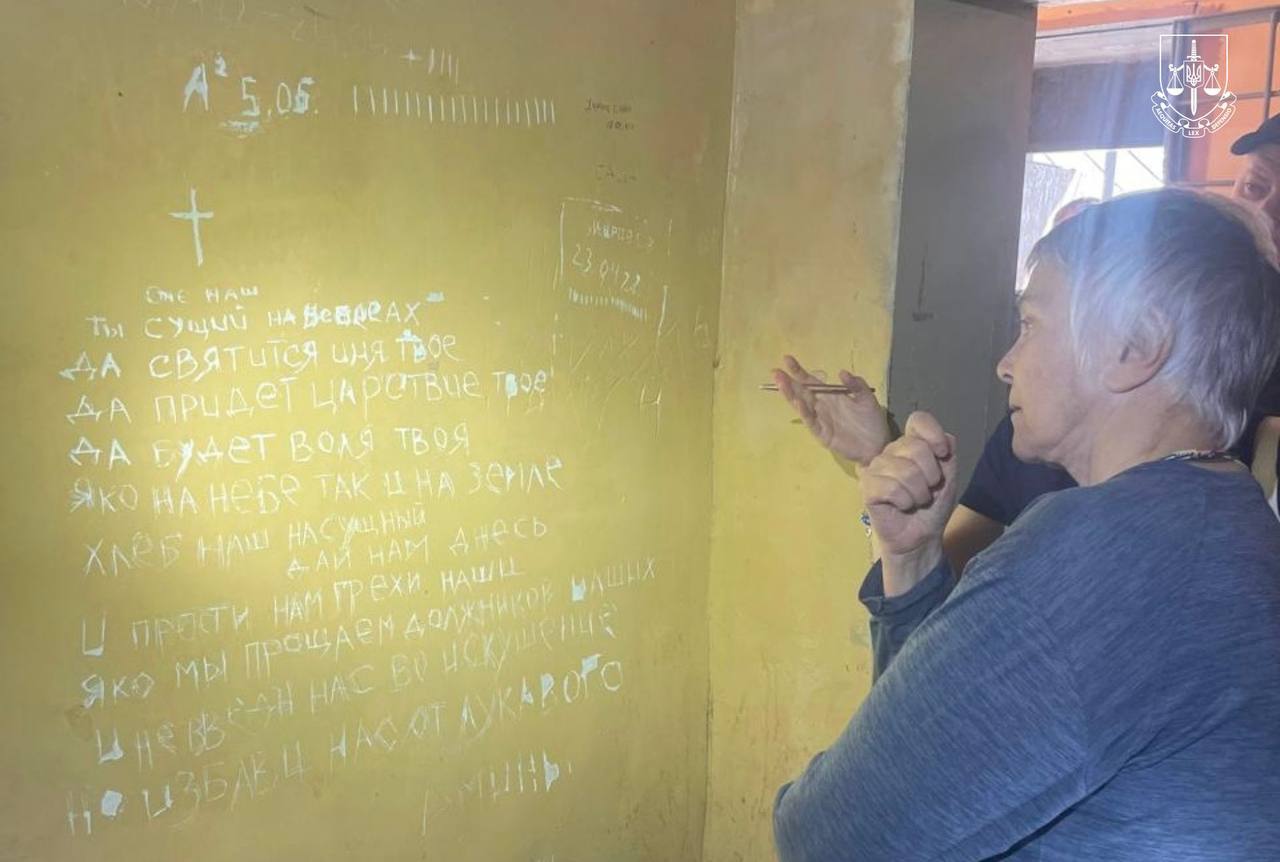 А² 5.06.
23.04.22
ОЧЕ НАШ
Ты СУЩИЙ НА НеБеСАХ
ДА СВЯТИТСЯ ИМЯ ТвОЕ
ДА ПРИДЕТ ЦАРСТВИЕ ТвОЕ
ДА БУДЕТ ВОЛЯ ТВОЯ
ЯКО НА НЕБЕ ТАК И НА ЗЕМЛЕ
ХЛЕБ НАШ НАСУЩНЫЙ
ДАЙ НАМ ДНЕСЬ
И ПРОСТИ НАМ ГРЕХИ НАШИ
ЯКО МЫ ПРОЩАЕМ ДОЛЖНИКОВ НАШИХ
И Не ВВЕДИ НАС ВО ИСКУШЕНИЕ
НО ИЗБАВИ НАС ОТ ЛУКАВОГО
АМИНЬ
AEQUITAS LEX DEFENSIO